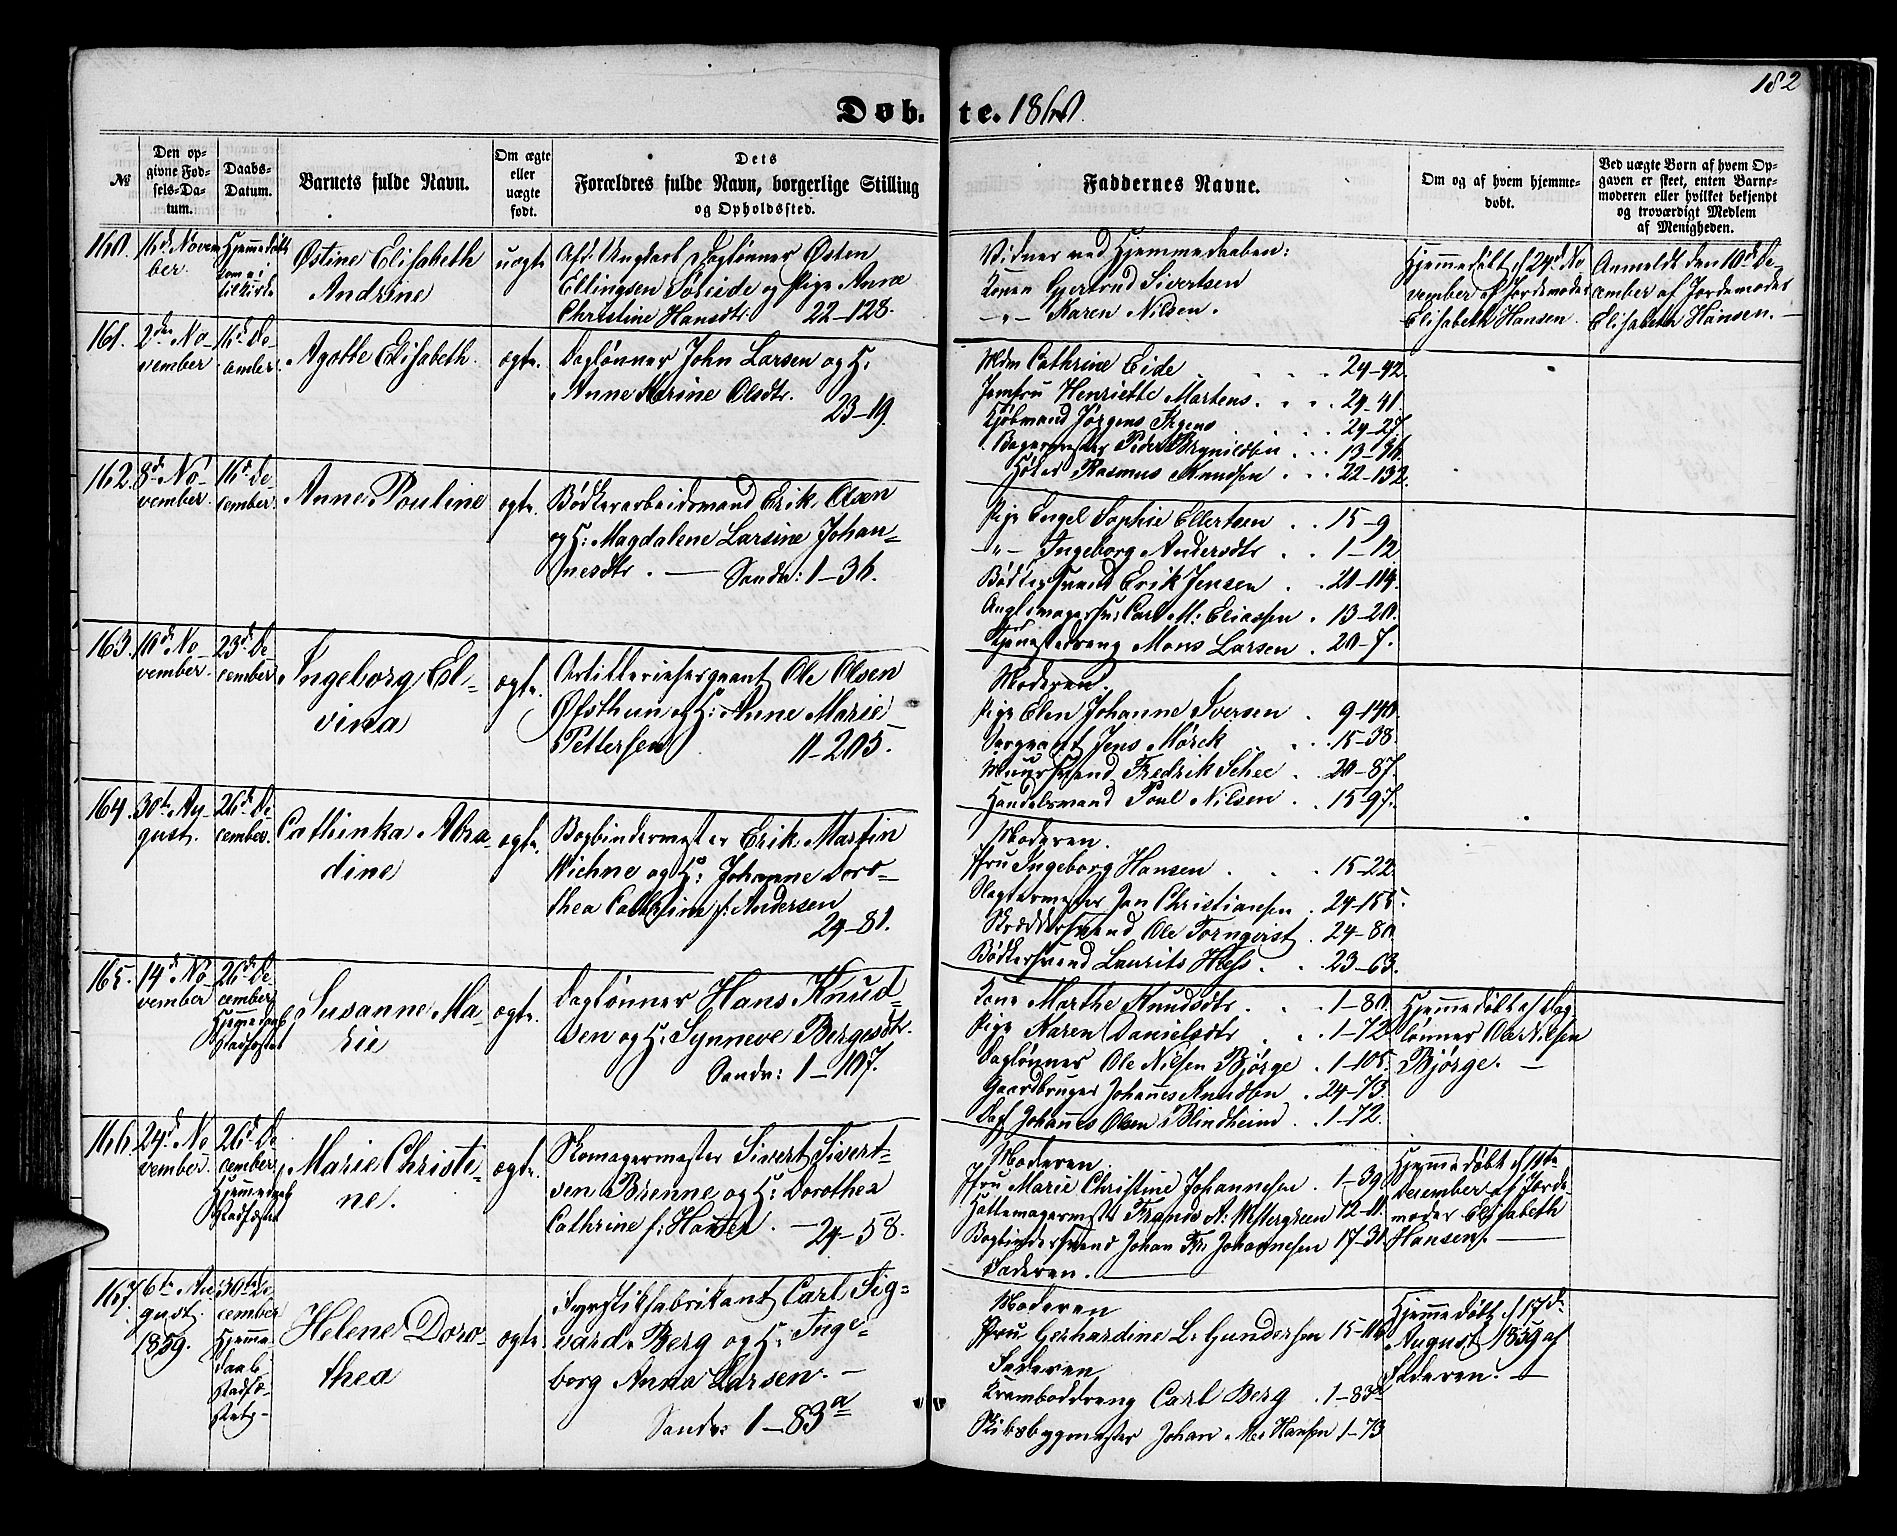 182
Døb- te. 1860.
№
Den op-
givne Fød-
sels-Da-
tum.
Daabs-
Datum.
Barnets fulde Navn.
Om ægte
eller
uægte
født.
Dets
Forældres fulde Navn, borgerlige Stilling
og Opholdssted.
Faddernes Navne.
Om og af hvem hjemme-
døbt.
Ved uægte Børn af hvem Op-
gaven er skeet, enten Barne-
moderen eller hvilket bekjendt
og troværdigt Medlem
af Menigheden.
160. 16d. Novem
ber.
Hjemmedøbt
Østine Elisabeth
Andrine
uægte
Ungkarl Daglønner Østen
Ellingsen Søreide og Pige Anne
Christine Hansdtr. 22-128.
Vidner ved Hjemmedaaben:
Konen Gjertrud Sivertsen
-"- Karen Nilsen.
Hjemmedøbt d. 24d. No
vember af Jordemoder
Elisabeth Hansen.
Anmeldt den 10d. De-
cember af Jordemoder
Elisabeth Hansen.
161. 2den No
vember
16d. De-
cember.
Agathe Elisabeth.
ægte.
Dagløner John Larsen og H:
Anne Karine Olsdtr.
23-19.
Mdm Cathrine Eide 24-42.
Jomfru Henriette Martens. 24-41
Kjøbmand Jørgens Irgens 24-27.
Bagermester Peder Brynildsen 13-96.
Rasmus Knudsen 22-132.
162. 8d. No-
vember.
16d. De-
cember.
Anne Pouline
ægte.
Bødkerarbeidsmand Erik Olsen
og H: Magdalene Larsine Johan-
nesdtr. — Sandv: 1-36.
Pige Engel Sophie Ellertsen 15-9
-"- Ingeborg Andersdtr 1-12
Bødkersvend Erik Jensen 21-114.
Carl M: Eliassen 13-20.
Tjenestedreng Mons Larsen. 20-7.
163. 10d. No-
vember.
23d. De
cember
Ingeborg El-
vina
ægte.
Artillerisergeant Ole Olsen
Øfsthun og H: Anne Marie
Pettersen. 11-205.
Moderen.
Pige Elen Johanne Iversen 9-140.
Sergeant Jens Mørck 15-38.
Muursvend Fredrik Schee 20-87.
Handelsmand Poul Nilsen 15-97.
164. 30te Au-
gust.
26d. De
cember.
Cathinka Abra
dine
ægte.
Bogbindermester Erik Martin
Wichne og H: Johanne Doro-
thea Cathrine f: Andersen
24-81.
Moderen.
Fru Ingeborg Hansen 15-22.
Slagtermester Jan Christiansen. 24-155.
Skræddersvend Ole Torngvist. 24-80.
Bødkersvend Laurits Hess 23-63.
165. 14d. No
vember
26d. De
cember
Hjemmedaab
stadfæstet
Susanne Ma-
lie
ægte.
Dagløner Hans Knud-
sen og H: Synneve Bergesdtr.
Sandv: 1-107.
Kone Marthe Knudsdtr. 1-80.
Pige Karen Danielsdtr 1-72.
Dagløner Ole Nilsen Bjørge. 1-105.
Gaardbruger Johannes Knudsen. 24-73.
Dagl. Johannes Olsen Blindheim. 1-72.
Hjemmedøbt af Dag
lønner Ole Nilsen
Bjørge. —
166. 24d. No
vember.
26d. De
cember.
Hjemmedaab
stadfæstet
Marie Christi-
ne.
ægte.
Skomagermester Sivert Sivert-
sen Brenne og H: Dorothea
Cathrine f: Hansen. — 24-58.
Moderen.
Fru Marie Christine Johannesen. 1-39.
Hattemagermester Frands A: Westergreen 12-11.
Bogbindersvend Johan Fr: Johannesen 17-31.
Faderen.
Hjemmedøbt d. 11te
December af Jorde
moder Elisabeth
Hansen. —
167. 6te Au
gust
1859.
30te De
cember
Hjemme-
daab
stadfæ-
stet.
Helene Doro-
thea
ægte.
Fyrstikfabrikant Carl Sig-
vard Berg og H: Inge-
borg Anna Larsen. —
Sandv: 1-83a
Moderen
Fru Gerhardine L: Gundersen 15-116.
Faderen
Krambodreng Carl Berg. 1-83a
Skibsbygmester Johan M: Hansen 1-73
Hjemmedøbt d. 17d.
August 1859 af
Faderen. —